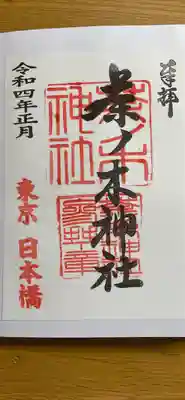 奉拝
茶ノ木神社
令和四年正月
東京 日本橋